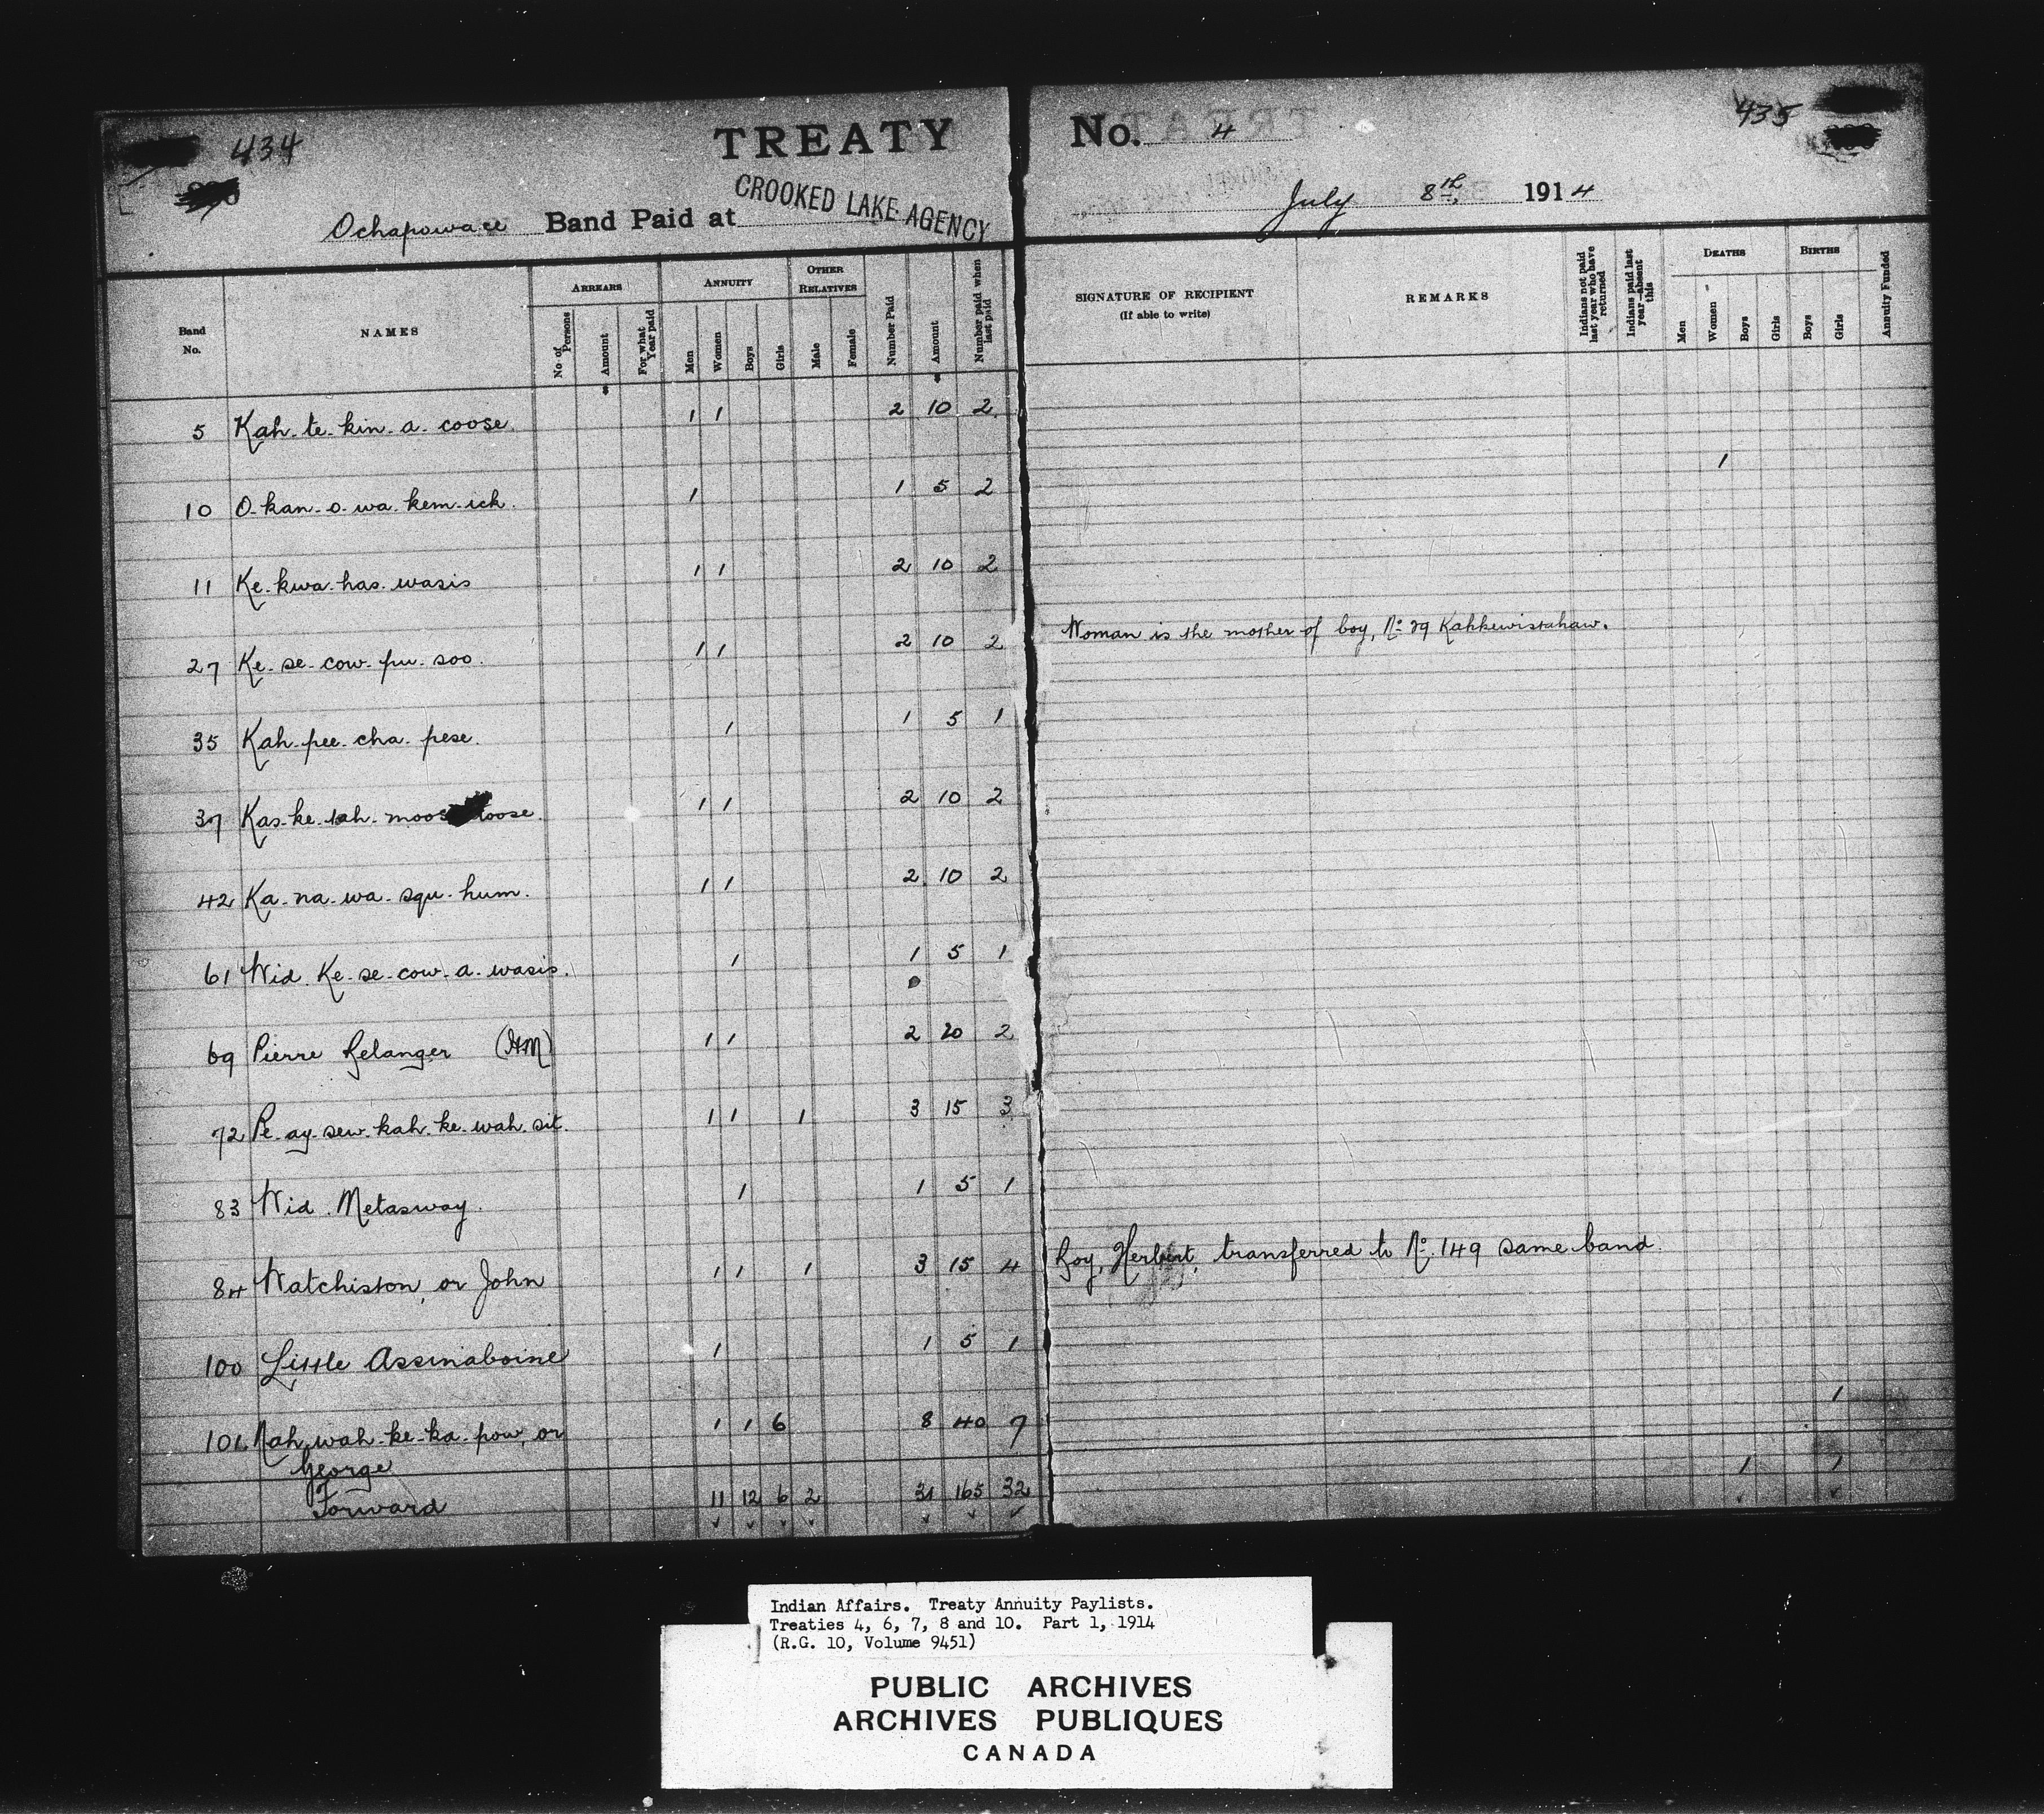 434
TREATY No. 4
435
Ochapowace Band Paid at CROOKED LAKE AGENCY
July 8th, 1914
Band No. NAMES ARREARS No. of Persons Amount For what Year paid ANNUITY Men Women Boys Girls OTHER RELATIVES Male Female Number Paid Amount Number paid when last paid
SIGNATURE OF RECIPIENT (If able to write) REMARKS Indians not paid last year who have returned Indians paid last year—absent this DEATHS Men Women Boys Girls BIRTHS Boys Girls Annuity Funded
5 Kah-te-kin-a-coose 1 1 2 10 2
10 O-kan-o-wa-kem-ick 1 1 5 2 1
11 Ke-kwa-has-wasis 1 1 2 10 2
27 Ke-se-cow-pu-soo 1 1 2 10 2 Woman is the mother of boy, No 29 Kahkewistahaw.
35 Kah-pee-cha-pese 1 1 5 1
37 Kas-ke-tah-moos toose 1 1 2 10 2
42 Ka-na-wa-squ-hum 1 1 2 10 2
61 Wid. Ke-se-cow-a-wasis 1 1 5 1
69 Pierre Belanger (HM) 1 1 2 20 2
72 Pe-ay-sew-kah-ke-wah-sit 1 1 1 3 15 3
83 Wid. Metasway 1 1 5 1
84 Watchiston, or John 1 1 1 3 15 4 Boy, Herbert, transferred to No. 149 same band.
100 Little Assinaboine 1 1 5 1
101 Nah-wah-ke-ka-pow, or 1 1 6 8 40 7 1
George
Forward 11 12 6 2 31 165 32 1 1
Indian Affairs. Treaty Annuity Paylists.
Treaties 4, 6, 7, 8 and 10. Part 1, 1914
(R.G. 10, Volume 9451)
PUBLIC ARCHIVES
ARCHIVES PUBLIQUES
CANADA